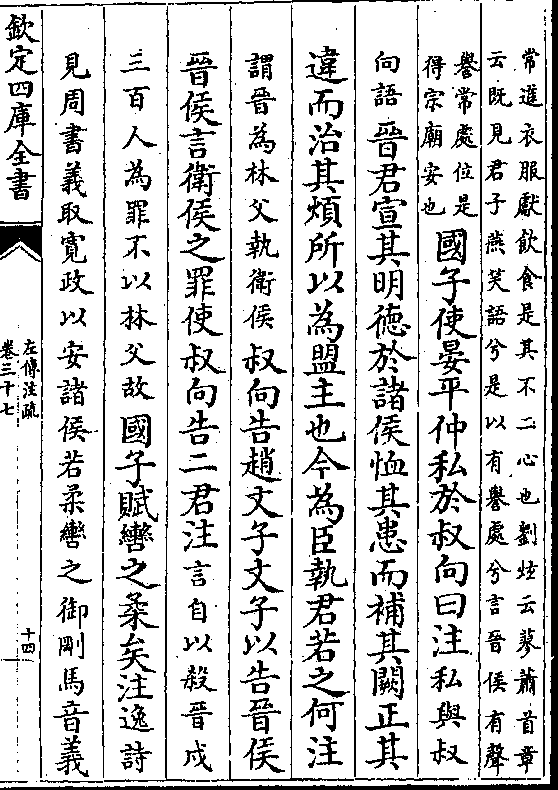 常進衣服獻飲食是其不二心也劉炫云蓼蕭首章
云既見君子燕笑語兮是以有譽處兮言晉侯有聲
譽常處位是
得宗廟安也
國子使晏平仲私於叔向曰注私與叔
向語晉君宣其明德於諸侯恤其患而補其闕正其
違而治其煩所以為盟主也今為臣執君若之何注
謂晉為林父執衛侯叔向告趙文子文子以告晉侯
晉侯言衛侯之罪使叔向告二君注言自以殺晉戍
三百人為罪不以林父故國子賦轡之柔矣注逸詩
見周書義取寬政以安諸侯若柔轡之御剛馬音義
欽定四庫全書
左傳注疏
卷三十七
十四